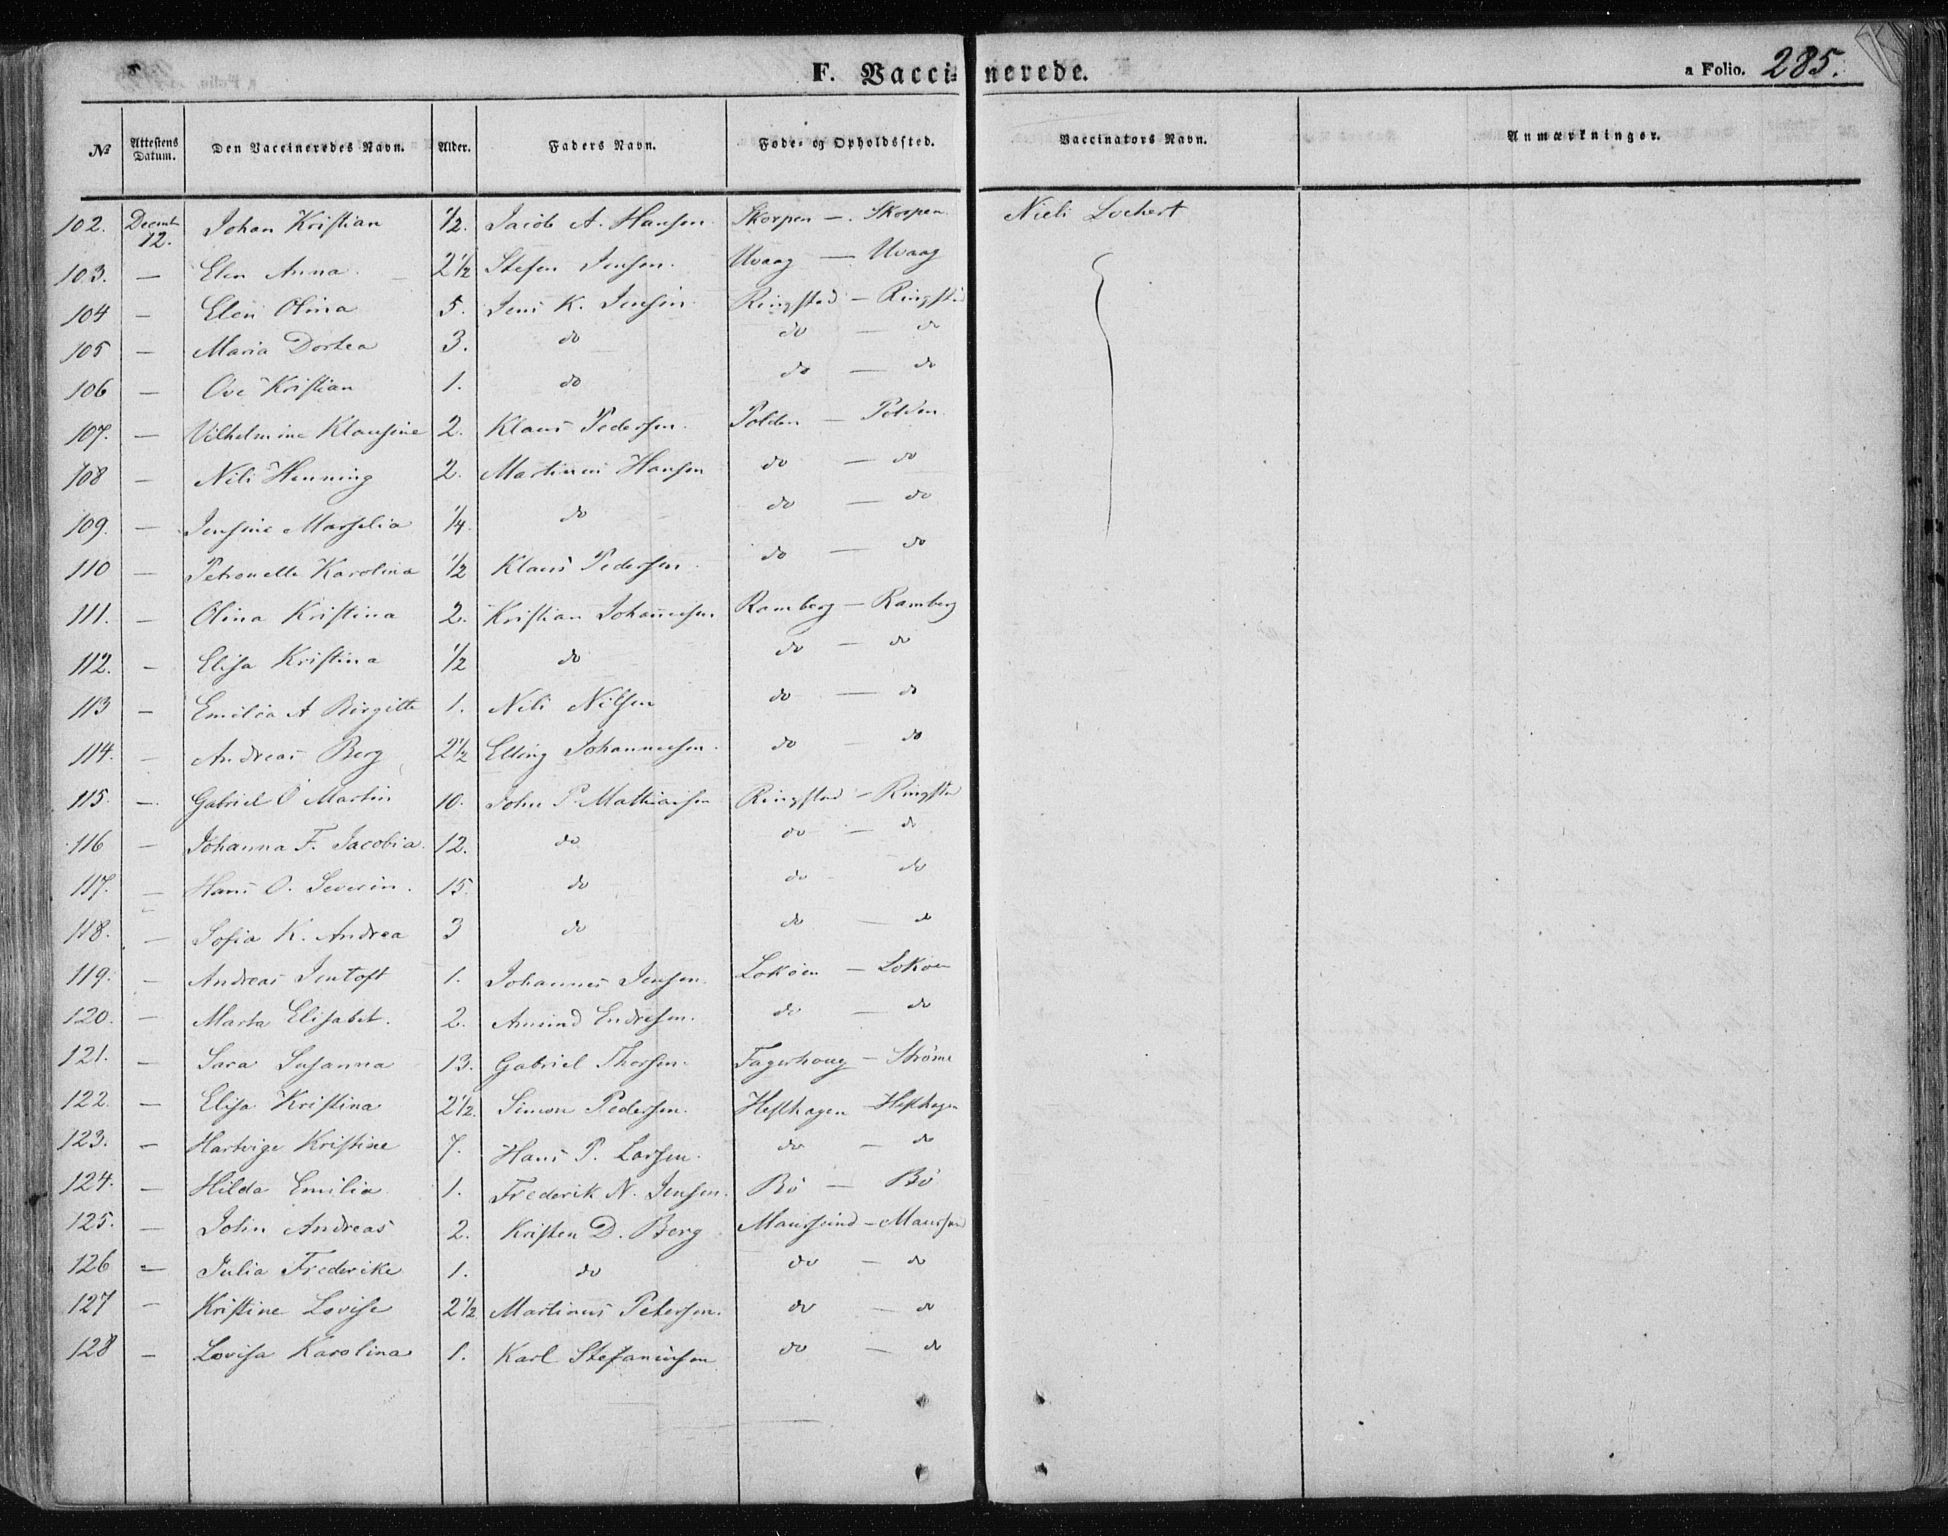 F. Vaccinerede. a Folio. 285.
№ Attestens Datum. Den Vaccineredes Navn. Alder. Faders Navn. Føde- og Opholdssted. Vaccinators Navn. Anmærkninger.
102. Decembr 12. Johan Kristian 1/2. Jacob A. Hansen. Skorpen —. Skorpen. Niels Lochert
103. — Elen Anna. 2 1/2 Stefen Jensen. Uvaag — Uvaag
104 — Elen Olina 5. Jens K. Jensen Ringstad — Ringstad
105 — Maria Dortea 3. do do — do
106 — Ove Kristian 1. do do — do
107. — Vilhelmine Klausine 2. Klaus Pedersen. Polden — Polden.
108 — Nils Henning 2. Martinus Hansen do — do
109. — Jensine Marselia 1/4. do do — do
110 — Petronelle Karolina 1/2 Klaus Pedersen. do — do
111. — Olina Kristina 2. Kristian Johannesen Ramberg — Ramberg
112. — Elisa Kristina 1/2 do do — do
113 — Emilia A Birgitte 1. Nils Nilsen do — do
114. — Andreas Berg 2 1/2 Elling Johannesen. do — do
115. — Gabriel O Martin 10. John P. Mathiasen Ringstad — Ringsta
116 — Johanna F. Jacobia. 12. do do — do
117. — Hans O. Severin. 15. do do — do
118. — Sofia K. Andrea 3 do do — do
119. — Andreas Jentoft 1. Johannes Jensen. Lokøen — Lokøen
120. — Marta Elisabet. 2. Amund Endresen. do — do
121. — Sara Susanna 13. Gabriel Thorsen. Fagerhaug — Strøme
122. — Elisa Kristina 2 1/2. Simon Pedersen. Hefthagen — Hefthagen
123. — Hartvige Kristine 7. Hans P. Larsen. do — do
124. — Hilda Emilia 1. Frederik N. Jensen. Bö — Bö
125. — John Andreas 2. Kristen D. Berg Maursund — Maursund
126 — Julia Frederike 1. do do — do
127 — Kristine Lovise 2 1/2 Martinus Petersen. do — do
128 — Lovisa Karolina 1. Karl Stefanussen do — do